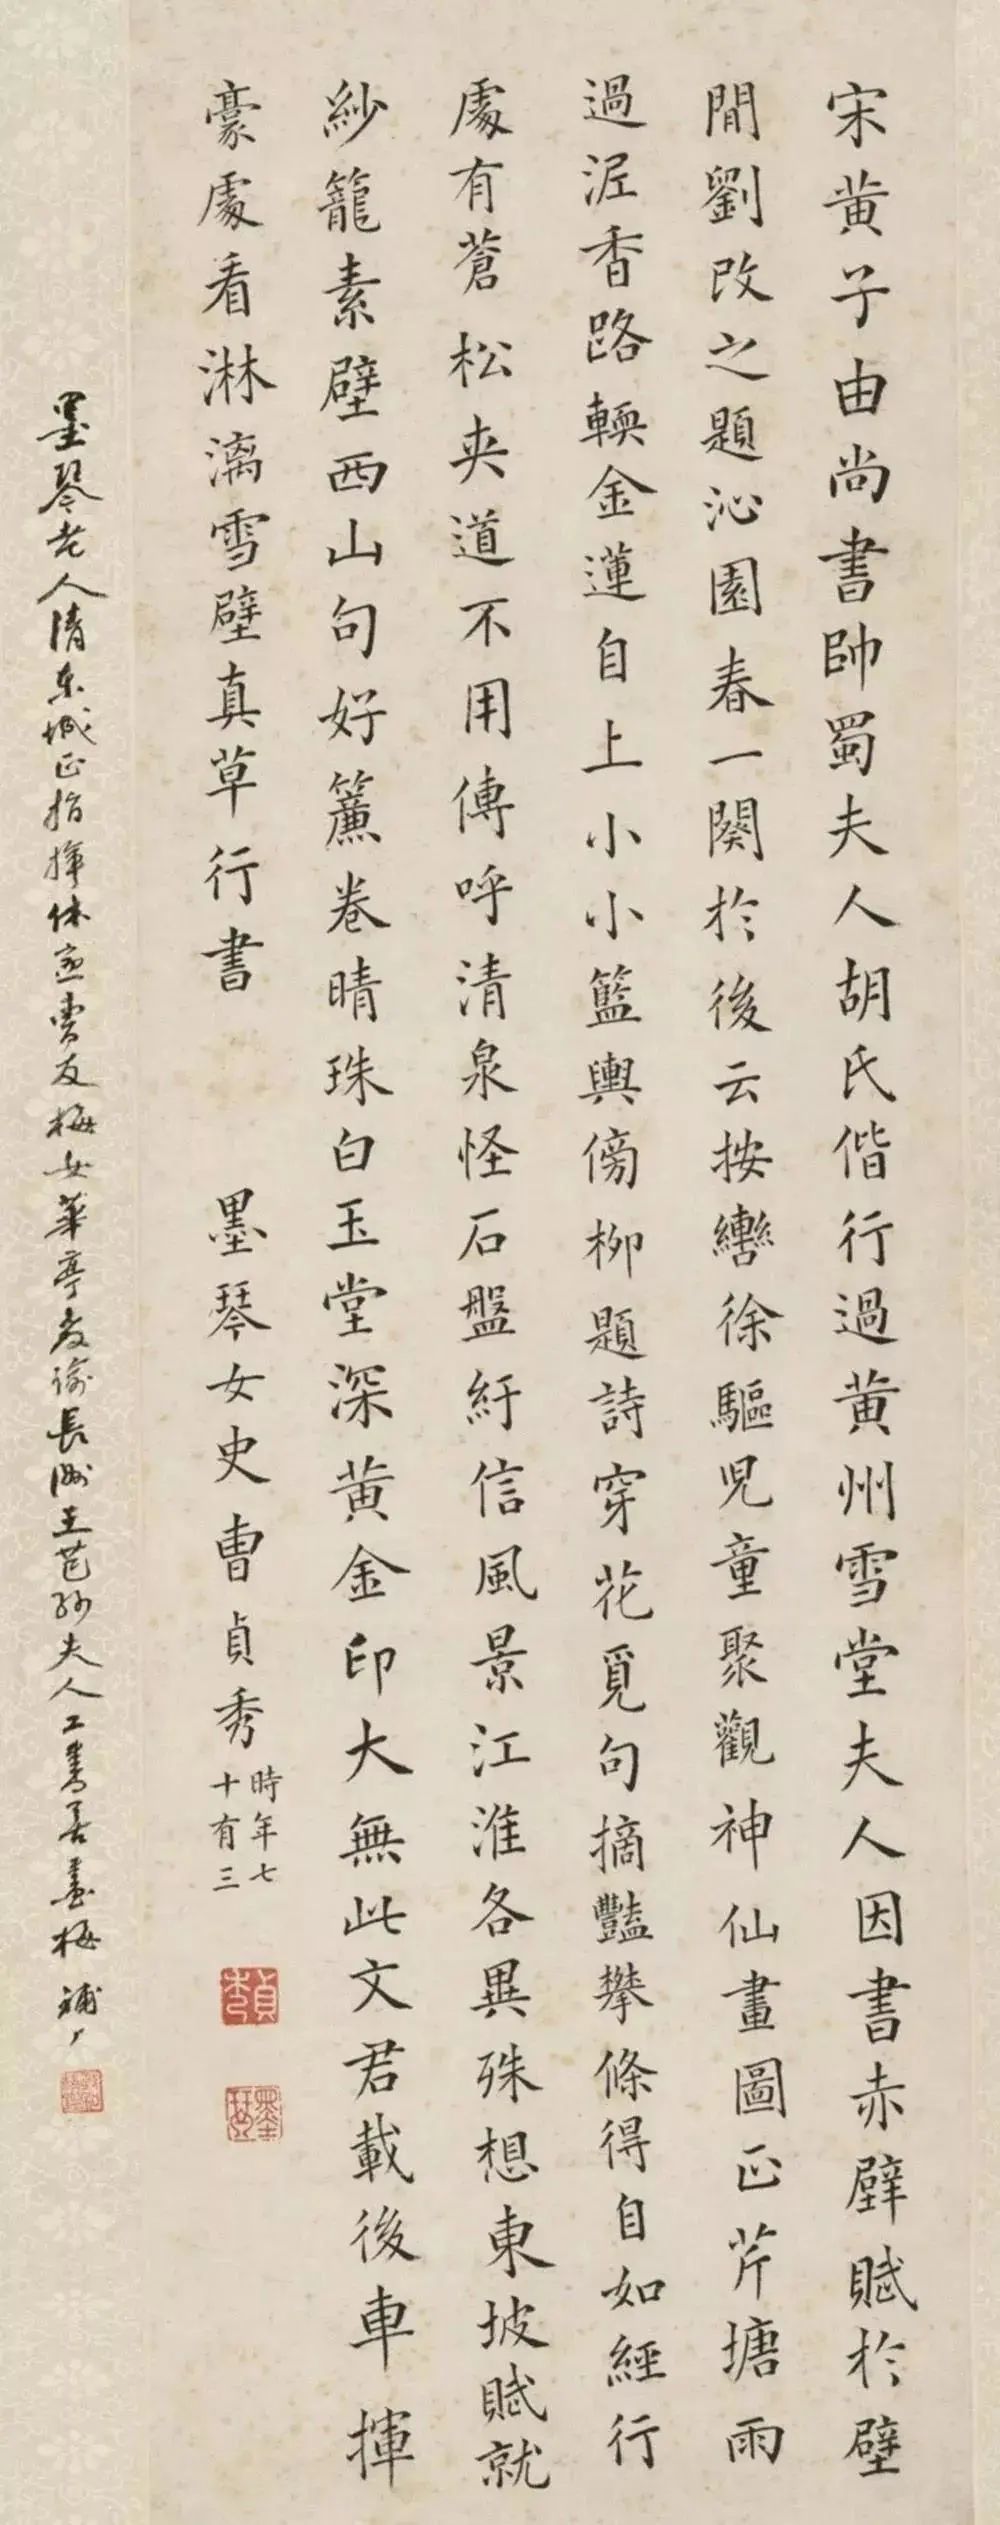 宋黄子由尚書帥蜀夫人胡氏偕行過黄州雪堂夫人因書赤壁賦於壁
間劉改之題沁園春一闋於後云按轡徐驅児童聚觀神仙畫圖正芹塘雨
過泥香路輭金蓮自上小小籃輿傍柳題詩穿花覓句摘豔攀條得自如經行
處有蒼松夾道不用傳呼清泉怪石盤紆信風景江淮各異殊想東坡賦就
紗籠素壁西山句好簾卷晴珠白玉堂深黄金印大無此文君載後車揮
豪處看淋漓雪壁真草行書
墨琴女史曹貞秀
時年七
十有三
貞秀
墨琴
墨琴老人清東城正指揮休寧曹友梅女華亭教諭長洲王芑孫夫人工書善畫梅